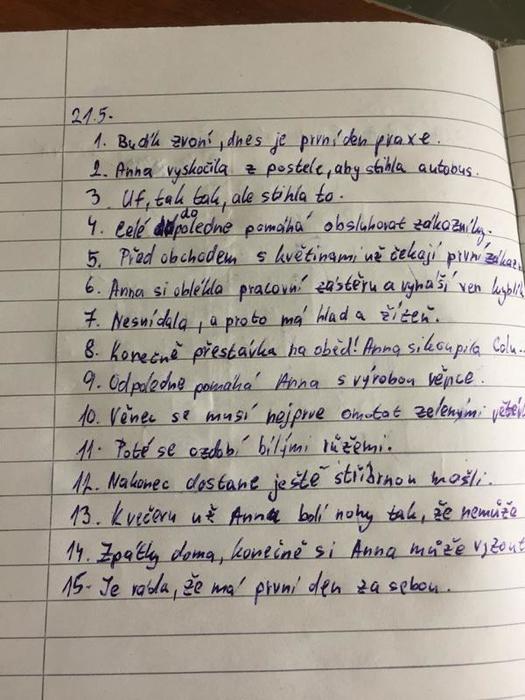 21.5.
1. Budík zvoní, dnes je první den praxe.
2. Anna vyskočila z postele, aby stihla autobus.
3 Uf, tak tak, ale stihla to.
4. Celé dopoledne pomáhá obsluhovat zákazníky.
5. Před obchodem s květinami už čekají první zákaz
6. Anna si oblékla pracovní zástěru a vynáší ven kyblík
7. Nesnídala, a proto má hlad a žízeň.
8. Konečně přestávka na oběd! Anna si koupila Colu
9. Odpoledne pomáhá Anna s výrobou věnce.
10. Věnec se musí nejprve omotat zelenými větév
11. Poté se ozdobí bílými růžemi.
12. Nakonec dostane ještě stříbrnou mašli.
13. K večeru už Anna bolí nohy tak, že nemůže
14. Zpátky doma, konečně si Anna může vyzout
15. Je ráda, že má první den za sebou.